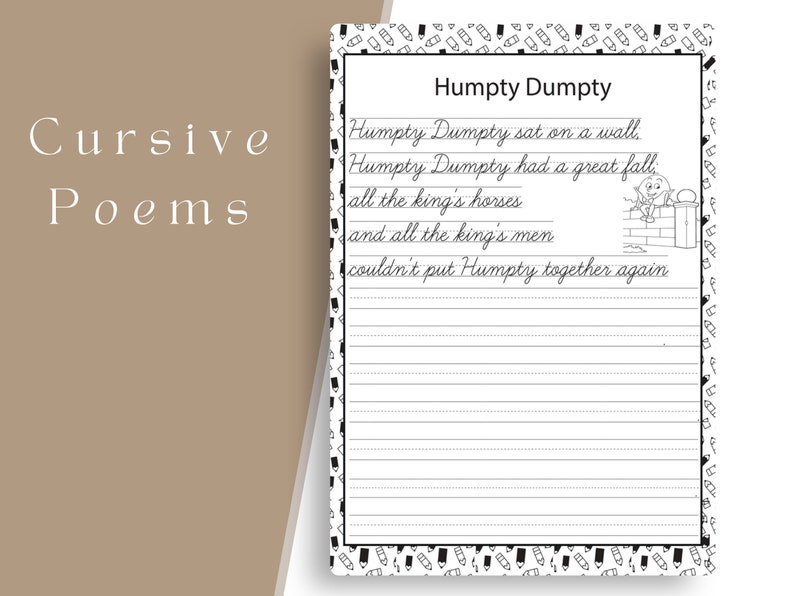 Cursive
Poems
Humpty Dumpty
Humpty Dumpty sat on a wall,
Humpty Dumpty had a great fall;
all the king's horses
and all the king's men
couldn't put Humpty together again